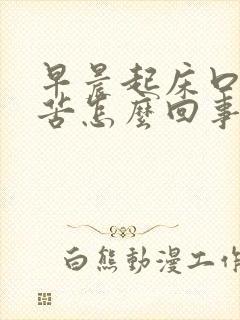 早晨起床口
苦怎麼回事
白熊動漫工作